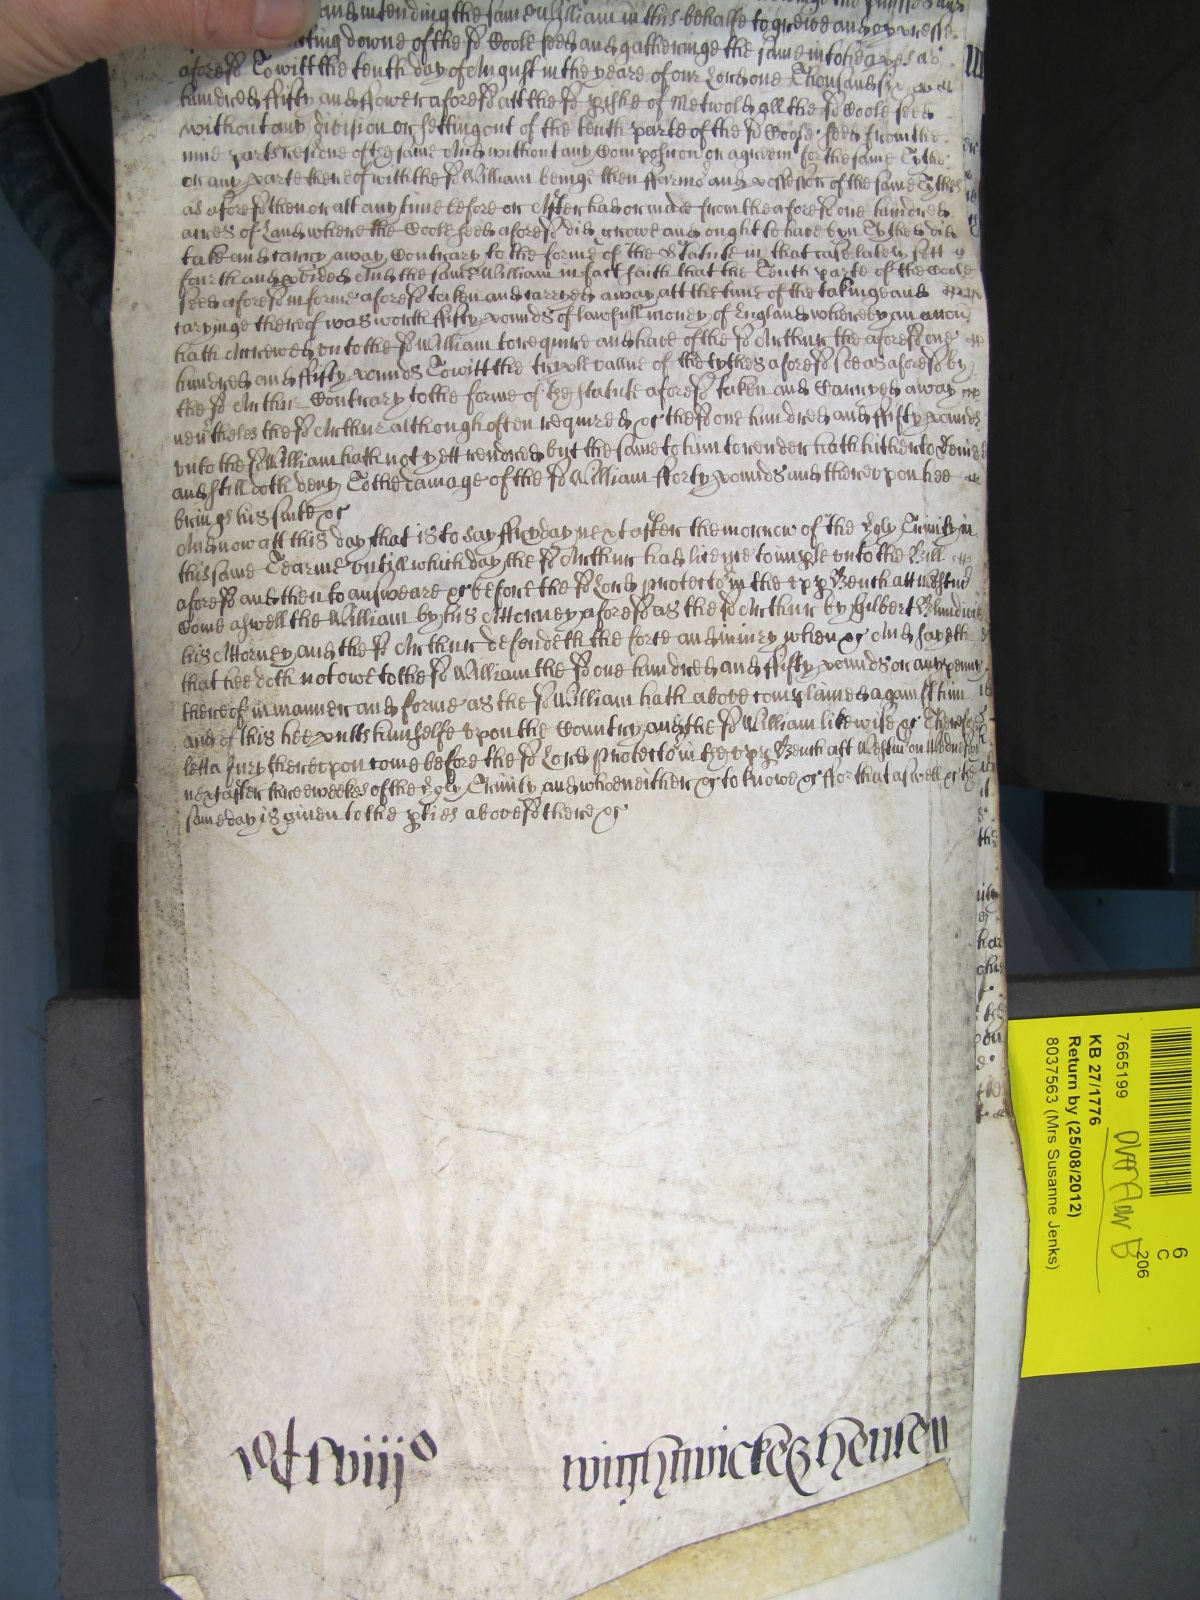 and intending the same William in this behalfe to greive and oppresse
cutting downe of the sd Coole seed and gatheringe the same into heapes as
aforesd To witt the tenth day of August in the yeare of our Lord one Thousand six
hundred fifty and ffower aforesd att the sd pishe of Metwold all the sd Coole seed
without any division or setting out of the tenth parte of the sd Coole seed from the
nine parts residue of the same And without any Composicon or agreemt for the same Tythe
or any parte thereof with the sd William beinge then ffarmor and possessor of the same Tythes
as aforesd then or att any time before or After had or made from the aforesd one hundred
acres of Land where the Coole seed aforesd did growe and ought to have byn Tythed did
take and carry away Contrary to the forme of the Statute in that case lately sett
fourth and pvided And the same William in fact saith that the Tenth parte of the Coole
seed aforesd in forme aforesd taken and carryed away att the time of the takinge and
caryinge thereof was worth ffifty pounds of lawfull money of England whereby an accon
hath Accrewed unto the sd William to require and have of the sd Arthur the aforesd one
hundred and ffifty pounds To witt the treple vallue of the tythes aforesd soe as aforesd by
the sd Arthur Contrary to the forme of the Statute aforesd taken and Carryed away
nevertheles the sd Arthur although often required &c the sd one hundred and ffifty pounds
unto the sd William hath not yett rendred but the same to him to render hath hitherto Denied
and still doth deny To the damage of the sd William fforty pounds and thereupon hee
brings his suite &c
And now att this day that is to say ffryday next after the morrow of the holy Trinity in
this same Tearme untill which day the sd Arthur had licence to imple unto the Bill
aforesd and then to answeare &c before the sd Lord Protector in the upp Bench att Westmr
Come aswell the William by his Attorney aforesd as the sd Arthur by Gilbert
his Attorney and the sd Arthur defendeth the force and iniury when &c And sayeth
that hee doth not owe to the sd William the sd one hundred and ffifty pounds or any penny
thereof in manner and forme as the sd William hath above complained against him
and of this hee putts himselfe upon the Country and the sd William likewise &c Therefore
lett a Jury thereupon come before the sd Lord Protector in the upp Bench att Westmr on Wednesday
next after three weekes of the holy Trinity and whoe neither &c to knowe &c ffor that aswell &c the
same day is given to the pties abovesd there &c
Wightwicke & henley
7665199
KB 27/1776
Return by (25/08/2012)
8037563 (Mrs Susanne Jenks)
6
C
206